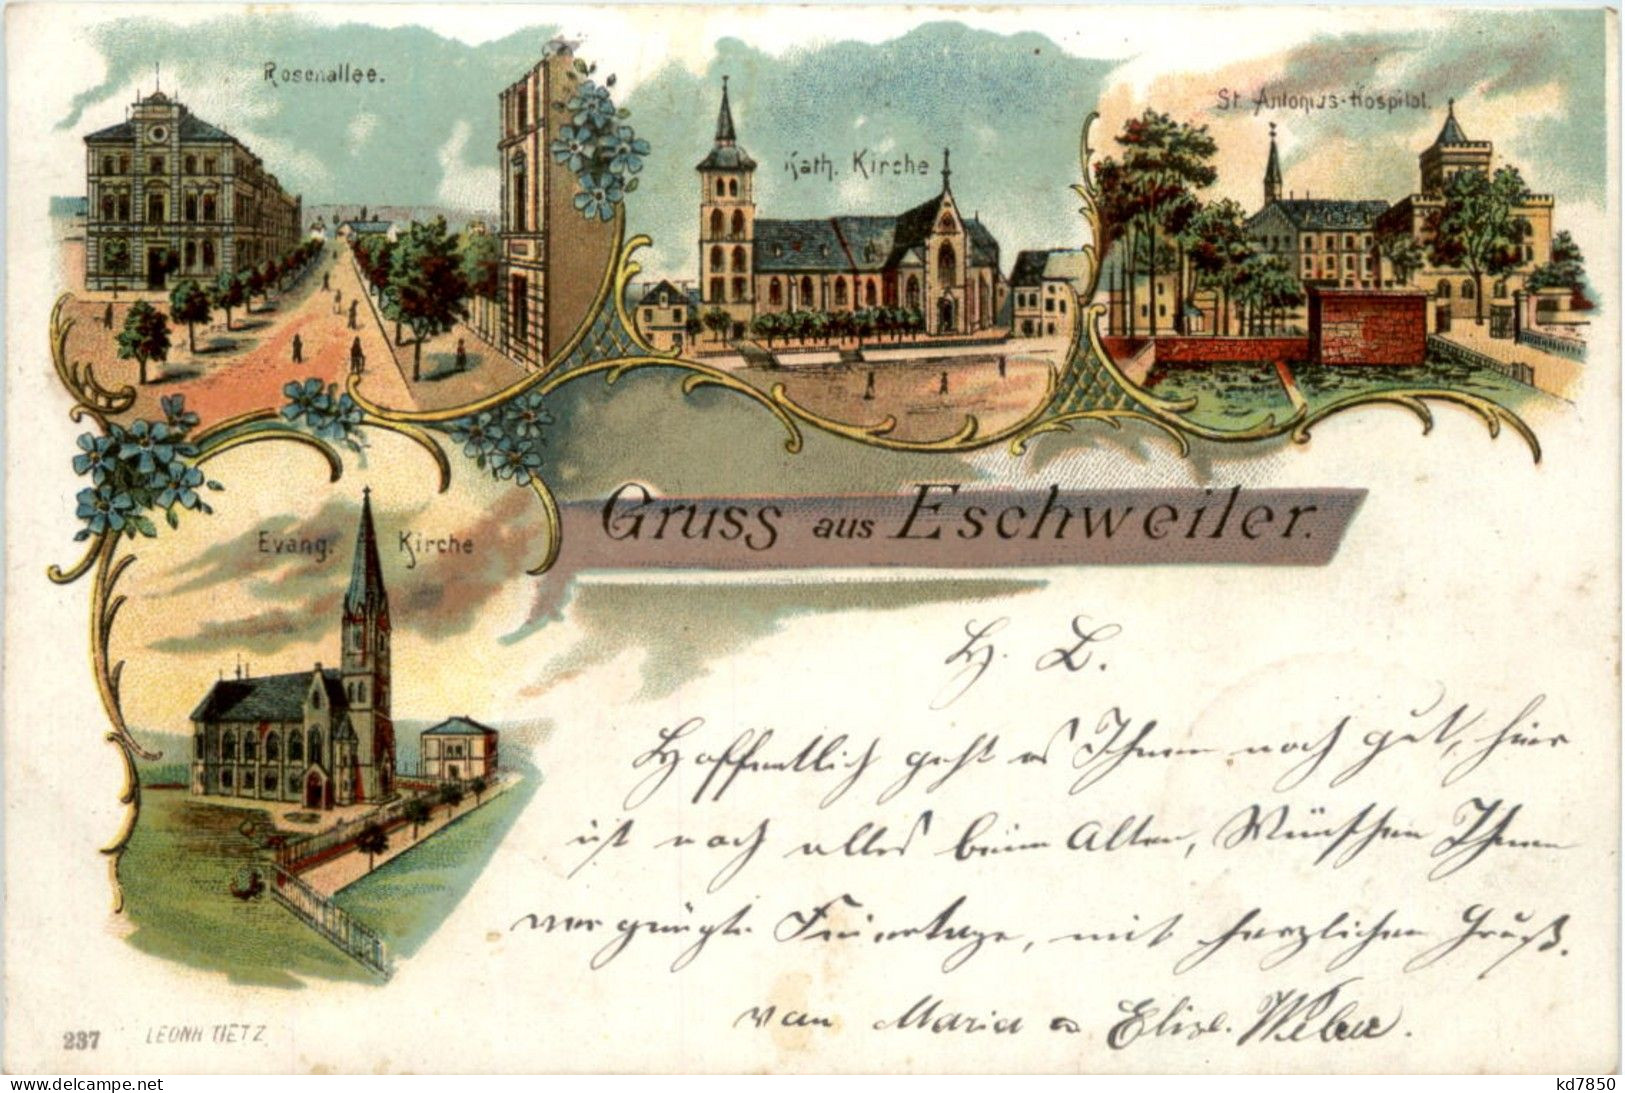 Rosenallee.
Kath. Kirche
St. Antonius-Hospital.
Evang. Kirche
Gruss aus Eschweiler.
H. L.
Hoffentlich geht es Ihnen noch gut, hier
ist noch alles beim Alten, Wünschen Ihnen
vergnügte Feiertage, mit herzlichen Gruß.
von Maria u Elise. Weber.
237 LEONH TIETZ
www.delcampe.net
kd7850